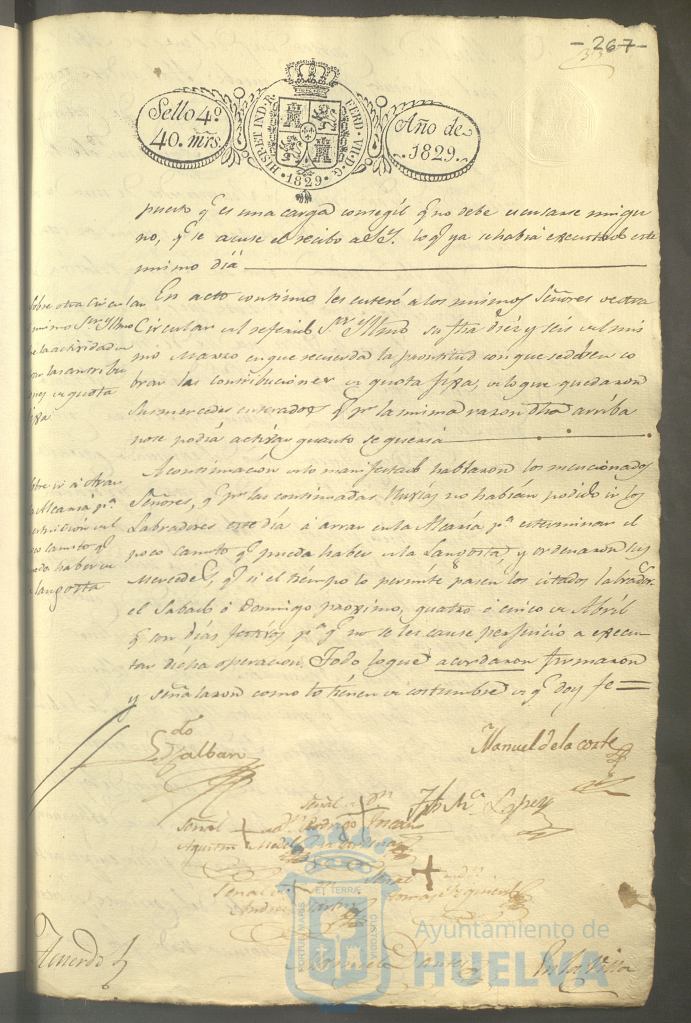 - 267 -
Sello 4º
40. mrs.
HISP. ET IND. R.
FERD. VII. D. G.
· 1829 ·
Año de
1829.
puerto q.e es una carga consegil q.e no debe escusarse ningu
no, q.e se acuse el recibo a S.Y. lo q.e ya se había executado este
mismo día
sobre otra Circular
mismo S.or Yllmo
la actividad en
las contribu
en quota
fixa
En acto continuo les enteré a los mismos Señores de otra
Circular del referido S.or Yllmo su fha diez y seis del mis
mo Marzo en que recuerda la prontitud con que se deben co
brar las contribuciones en quota fixa, de lo que quedaron
Sus mercedes enterados q.e p.r la misma razon dha arriba
no se podía activar quanto se quería
sobre ir a Arar
la Alcaría p.a
del
poco canuto q.e
pueda haber de
langosta
A continuación de lo manifestado hablaron los mencionados
Señores, q.e p.r las continuadas lluvias no habían podido ir los
Labradores este día a arrar en la Alcaría p.a esterminar el
poco canuto q.e pueda haber de la Langosta, y ordenaron sus
Mercedes, q.e si el tiempo lo permite pasen los citados labrador.s
el Sabado ó Domingo proximo, quatro ó cinco de Abril
q.e son días festivos p.a q.e no se les cause perjuicio a execu
tar dicha operación. Todo lo que acordaron firmaron
y señalaron como lo tienen de costumbre de q.e doy fe =
Manuel de la corte
López
Señal
Señal
Señal
Señal
PORTUS MARIS
ET TERRÆ
CUSTODIA
Ayuntamiento de
HUELVA
Acuerdo
En la Villa